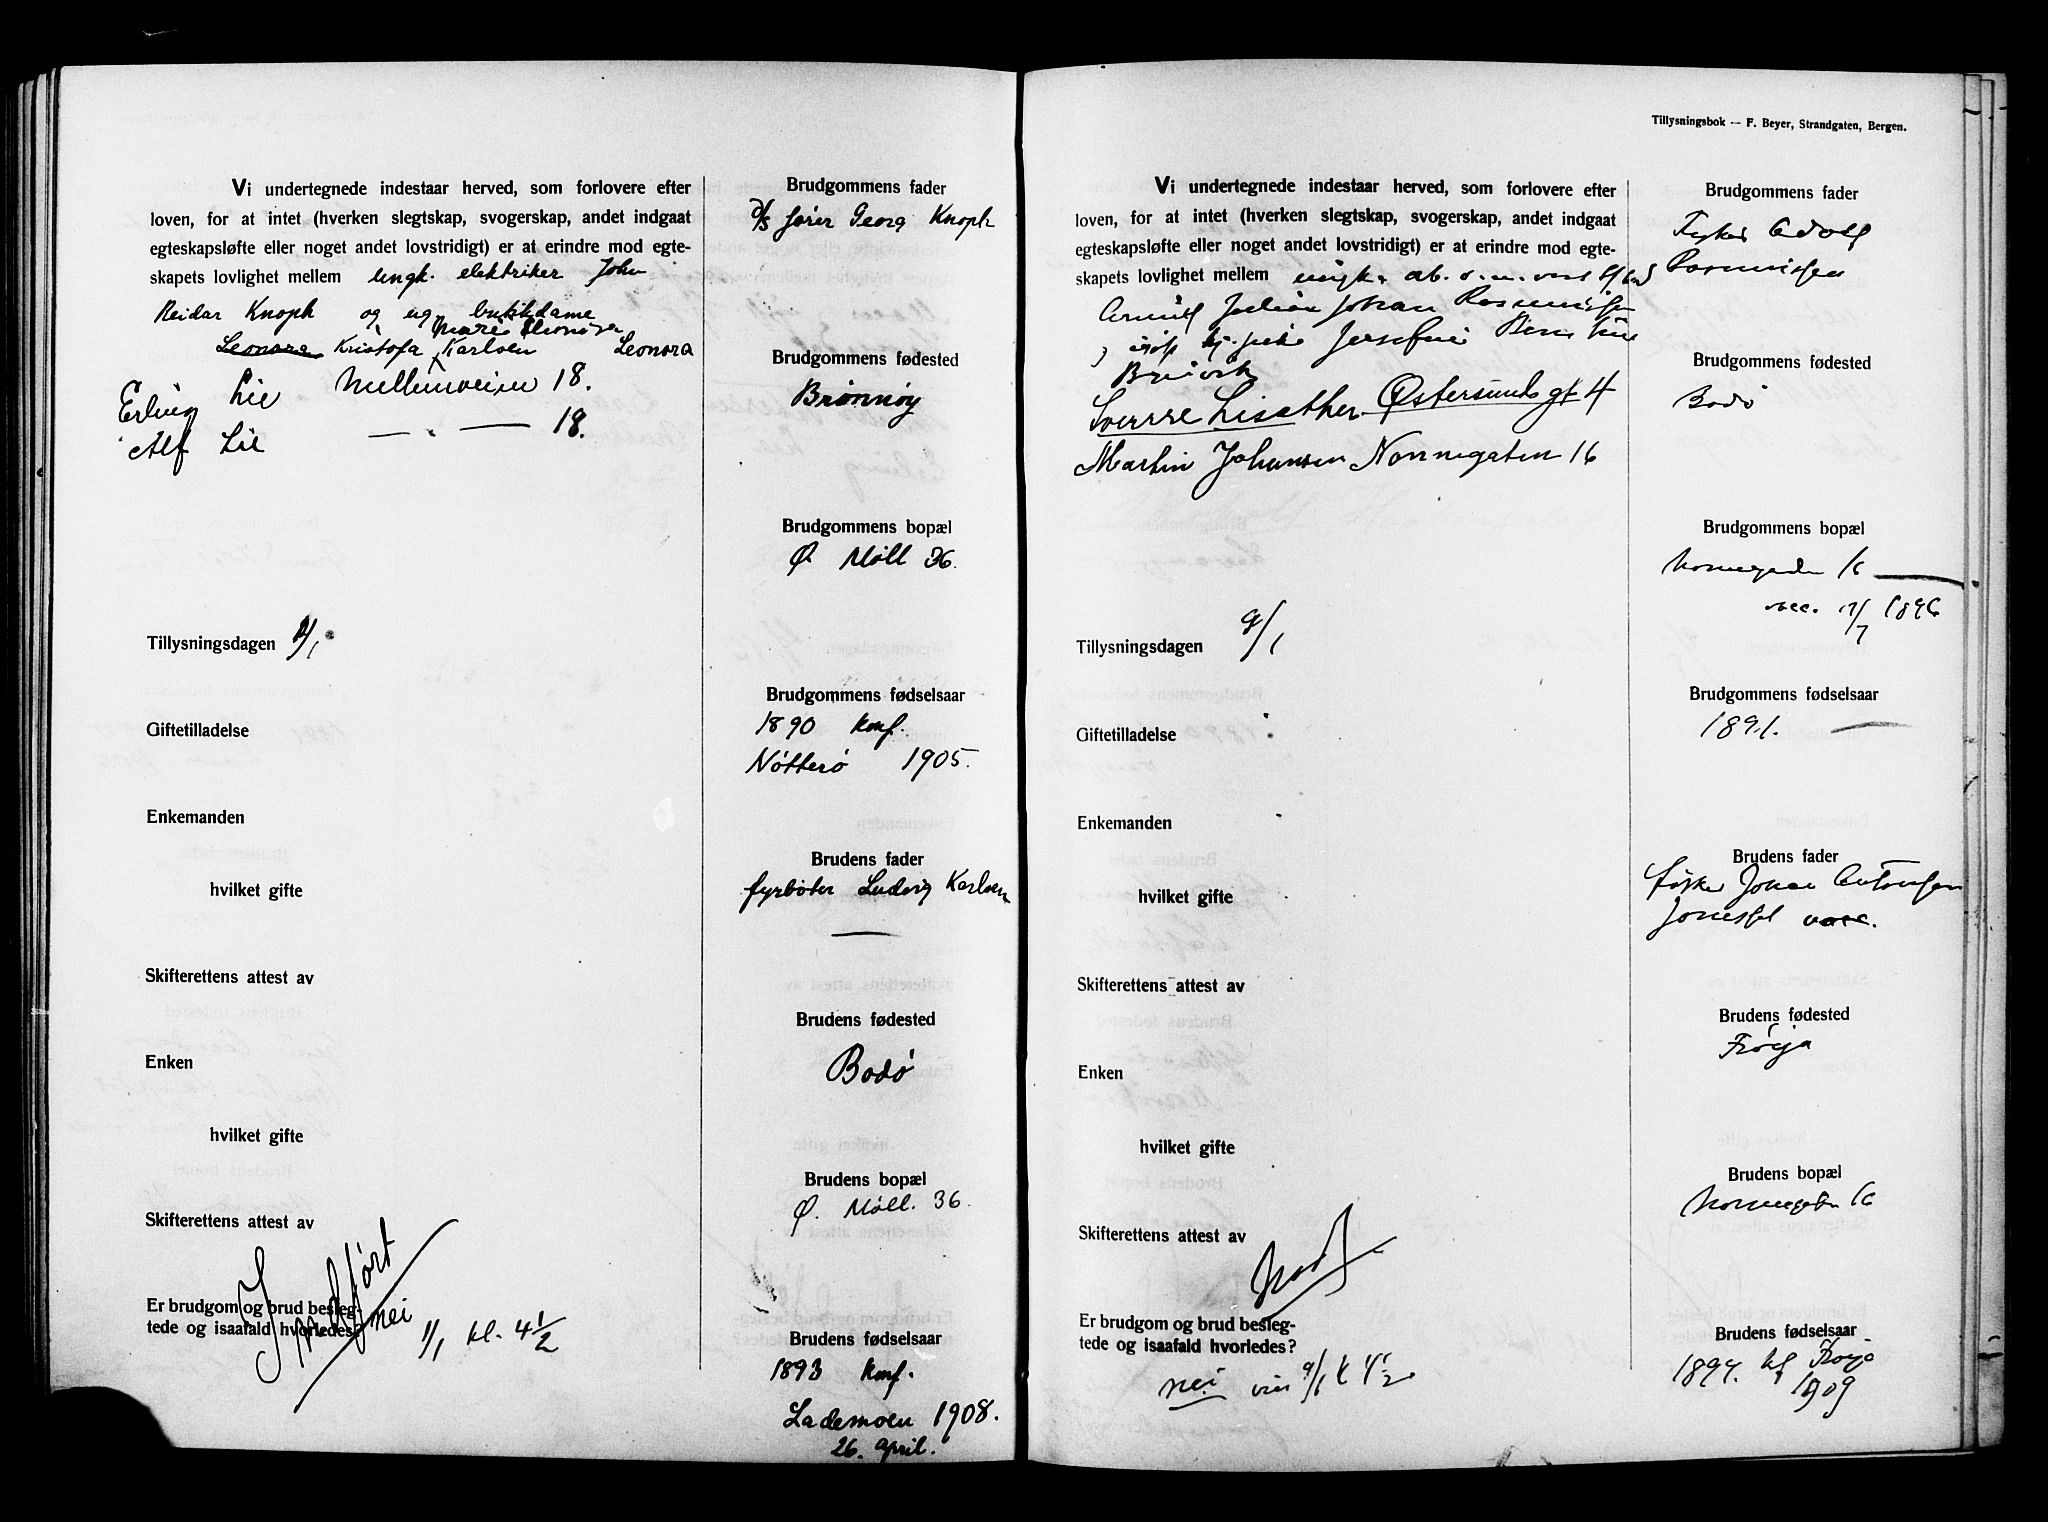 Vi undertegnede indestaar herved, som forlovere efter
loven, for at intet (hverken slegtskap, svogerskap, andet indgaat
egteskapsløfte eller noget andet lovstridigt) er at erindre mod egte-
skapets lovlighet mellem ungk. elektriker John
Reidar Knoph og ug butikdame
Leonora Kristofa Karlsen Leonora
Erling Lie Mellemveien 18.
Alf Lie — " — 18.
Tillysningsdagen
Giftetilladelse
Enkemanden
hvilket gifte
Skifterettens attest av
Enken
hvilket gifte
Skifterettens attest av
Indført
Er brudgom og brud besleg-
tede og isaafald hvorledes? nei 1/1 kl. 4 1/2
Brudgommens fader
d/s fører Georg Knoph
Brudgommens fødested
Brønnøy
Brudgommens bopæl
Ø Møll 36.
Brudgommens fødselsaar
1890 konf.
Nøtterø 1905.
Brudens fader
fyrbøter Ludvig Karlsen
Brudens fødested
Bodø
Brudens bopæl
Ø. Møll. 36
Brudens fødselsaar
1893 konf.
Lademoen 1908.
26. april.
Tillysningsbok — F. Beyer, Strandgaten, Bergen.
Vi undertegnede indestaar herved, som forlovere efter
loven, for at intet (hverken slegtskap, svogerskap, andet indgaat
egteskapsløfte eller noget andet lovstridigt) er at erindre mod egte-
skapets lovlighet mellem ungk.
Johan Rasmussen
pike
Sverre Lisether Østersunds gt 4
Martin Johansen Nonnegaten 16
Tillysningsdagen 9/1
Giftetilladelse
Enkemanden
hvilket gifte
Skifterettens attest av
Enken
hvilket gifte
Skifterettens attest av
Er brudgom og brud besleg-
tede og isaafald hvorledes?
nei 9/1 k 4 1/2
Brudgommens fader
Fisker Adolf
Rasmussen
Brudgommens fødested
Bodø
Brudgommens bopæl
Nonnegaden 16
vacc. 1896
Brudgommens fødselsaar
1891.
Brudens fader
fisker Johan Antonsen
vacc.
Brudens fødested
Frøya
Brudens bopæl
Nonnegaten 16
Brudens fødselsaar
1894. kf Frøya
1909